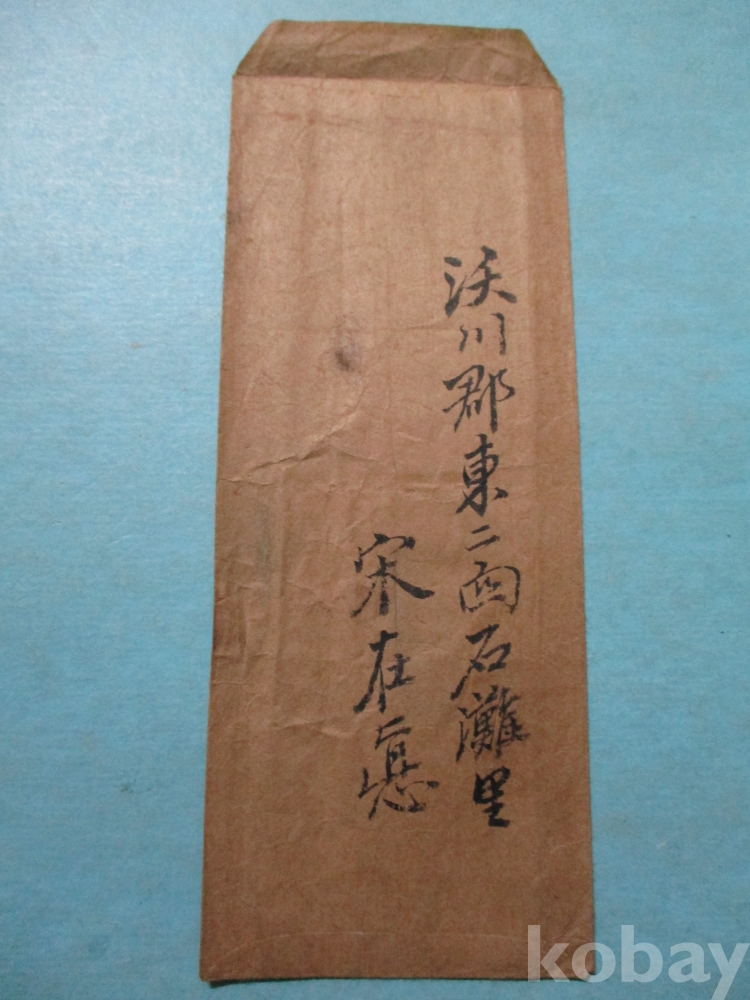 沃川郡東二面石灘里
宋在
kobay